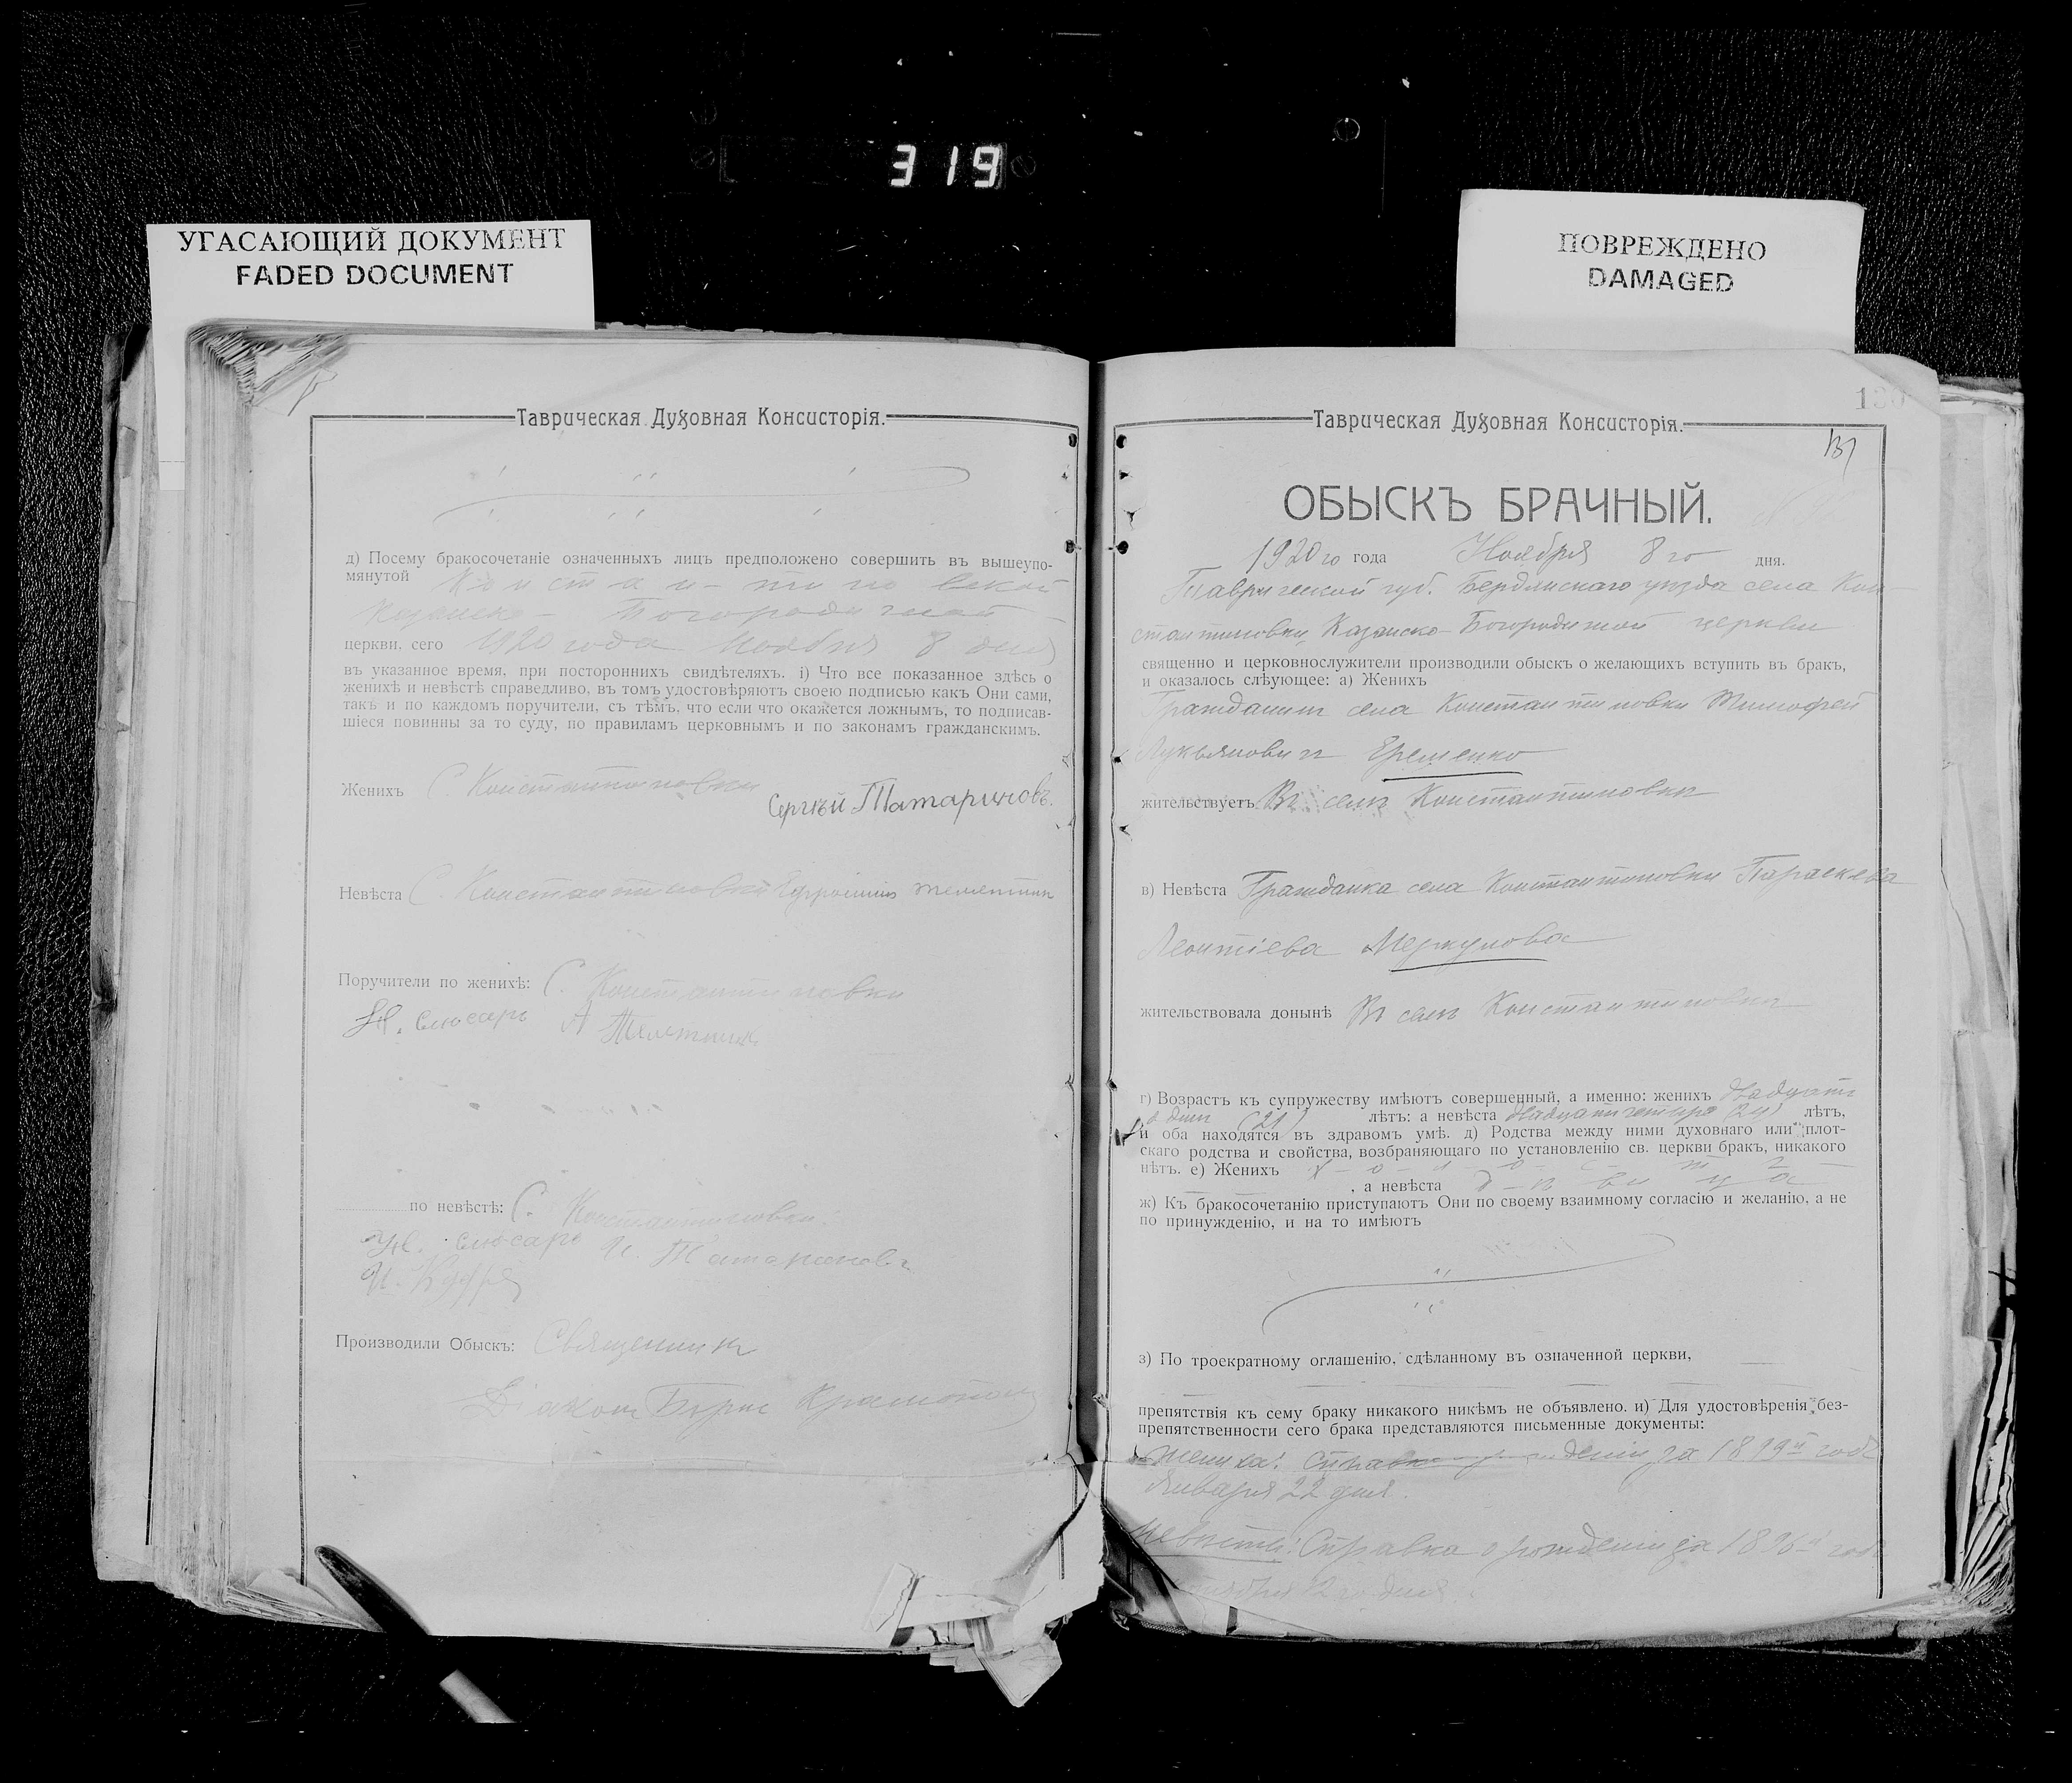 319
УГАСАЮЩИЙ ДОКУМЕНТ
FADED DOCUMENT
ПОВРЕЖДЕНО
DAMAGED
Таврическая Духовная Консисторія.
д) Посему бракосочетаніе означенныхъ лицъ предположено совершить въ вышеупо-
мянутой Константиновской
Казанско-Богородичной
церкви, сего 1920 года Ноября 8 дня
въ указанное время, при постороннихъ свидѣтеляхъ. і) Что все показанное здѣсь о
женихѣ и невѣстѣ справедливо, въ томъ удостовѣряютъ своею подписью какъ Они сами,
такъ и по каждомъ поручители, съ тѣмъ, что если что окажется ложнымъ, то подписав-
шіеся повинны за то суду, по правиламъ церковнымъ и по законамъ гражданскимъ.
Женихъ С. Константиновки
Сергѣй Татариновъ.
Невѣста С. Константиновки
Поручители по женихѣ: С. Константиновки
Н. Слюсарь А
по невѣстѣ: С. Константиновки:
Н. Слюсарь И. Татариновъ
Производили Обыскъ: Священникъ
Діаконъ Борис
Таврическая Духовная Консисторія.
131
ОБЫСКЪ БРАЧНЫЙ.
1920 го года Ноября 8 го дня.
Таврической губ. Бердянскаго уѣзда села Кон-
стантиновки, Казанско-Богородичной церкви
священно и церковнослужители производили обыскъ о желающихъ вступить въ бракъ,
и оказалось слѣующее: а) Женихъ
Гражданинъ села Константиновки Тимофей
Лукьяновичъ Еременко
жительствуетъ Въ селѣ Константиновкѣ
в) Невѣста Гражданка села Константиновки Параскева
Леонтіева Меркулова
жительствовала донынѣ Въ селѣ Константиновкѣ
г) Возрастъ къ супружеству имѣютъ совершенный, а именно: женихъ двадцать
одинъ (21) лѣтъ: а невѣста двадцать четыре (24) лѣтъ,
и оба находятся въ здравомъ умѣ. д) Родства между ними духовнаго или плот-
скаго родства и свойства, возбраняющаго по установленію св. церкви бракъ, никакого
нѣтъ. е) Женихъ х-о-л-о-с-т-ъ
, а невѣста д-ѣ-в-и-ц-а
ж) Къ бракосочетанію приступаютъ Они по своему взаимному согласію и желанію, а не
по принужденію, и на то имѣютъ
з) По троекратному оглашенію, сдѣланному въ означенной церкви,
препятствія къ сему браку никакого никѣмъ не объявлено. и) Для удостовѣренія без-
препятственности сего брака представляются письменные документы:
Жениха: Справка о рожденіи за 1899й годъ
Января 22 дня.
Невѣсты: Справка о рожденіи за 1896й годъ
12 го дня.